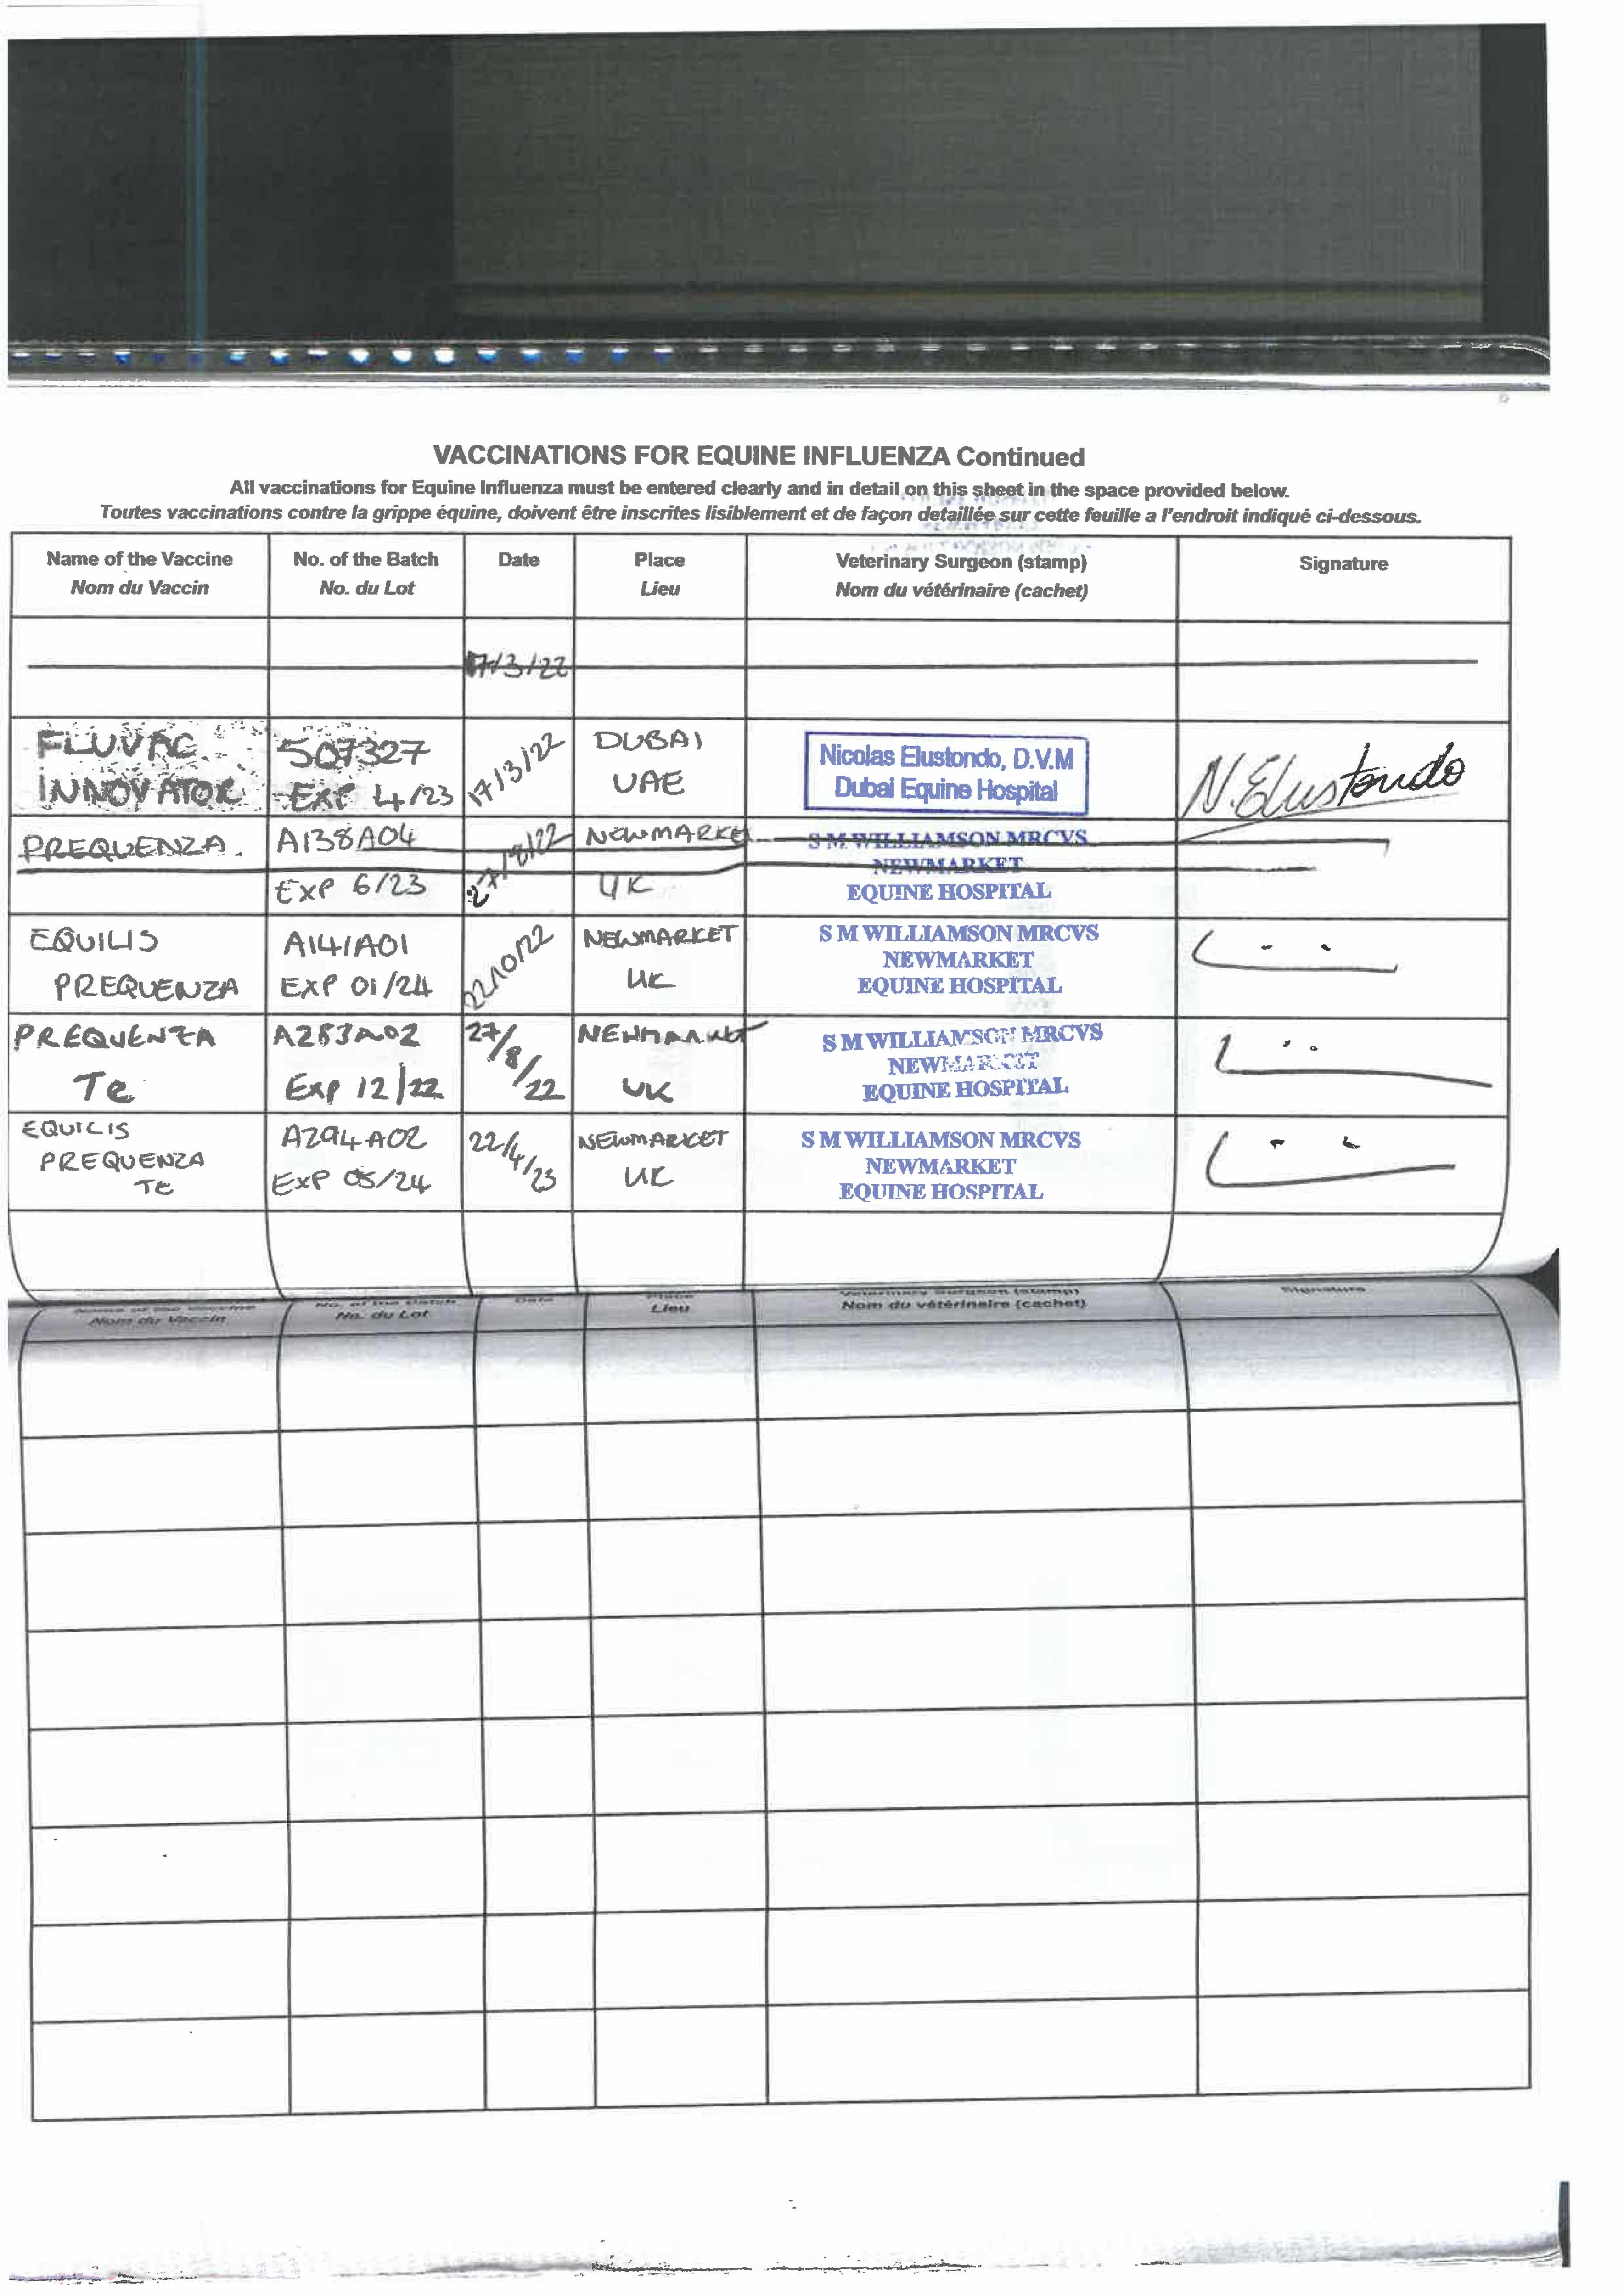 VACCINATIONS FOR EQUINE INFLUENZA Continued
All vaccinations for Equine Influenza must be entered clearly and in detail on this sheet in the space provided below.
Toutes vaccinations contre la grippe équine, doivent être inscrites lisiblement et de façon detaillée sur cette feuille a l'endroit indiqué ci-dessous.
Name of the Vaccine No. of the Batch Date Place Veterinary Surgeon (stamp) Signature
Nom du Vaccin No. du Lot Lieu Nom du vétérinaire (cachet)
17/3/22
FLUVAC 507327 17/3/22 DUBAI Nicolas Elustondo, D.V.M N.Elustondo
INNOVATOR EXP 4/23 UAE Dubai Equine Hospital
PREQUENZA. A138A04 27/8/22 NEWMARKE S M WILLIAMSON MRCVS
NEWMARKET
EXP 6/23 UK EQUINE HOSPITAL
EQUILIS A141A01 22/10/22 NEWMARKET S M WILLIAMSON MRCVS
NEWMARKET
PREQUENZA EXP 01/24 UK EQUINE HOSPITAL
PREQUENZA A283A02 27/8/22 NEWMARKET S M WILLIAMSON MRCVS
NEWMARKET
Te EXP 12/22 UK EQUINE HOSPITAL
EQUILIS A294A02 22/4/23 NEWMARKET S M WILLIAMSON MRCVS
PREQUENZA NEWMARKET
TE EXP 05/24 UK EQUINE HOSPITAL
Name of the Vaccine No. of the Batch Date Place Veterinary Surgeon (stamp) Signature
Nom du Vaccin No. du Lot Lieu Nom du vétérinaire (cachet)